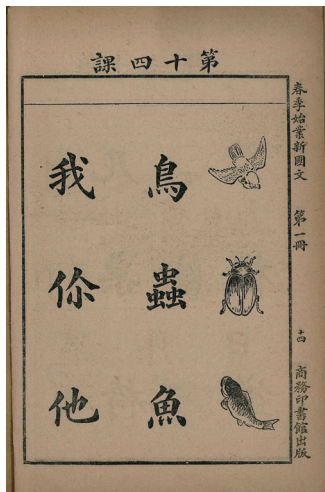 第十四課
鳥蟲魚
我你他
春季始業新國文 第一冊
十四
商務印書館出版